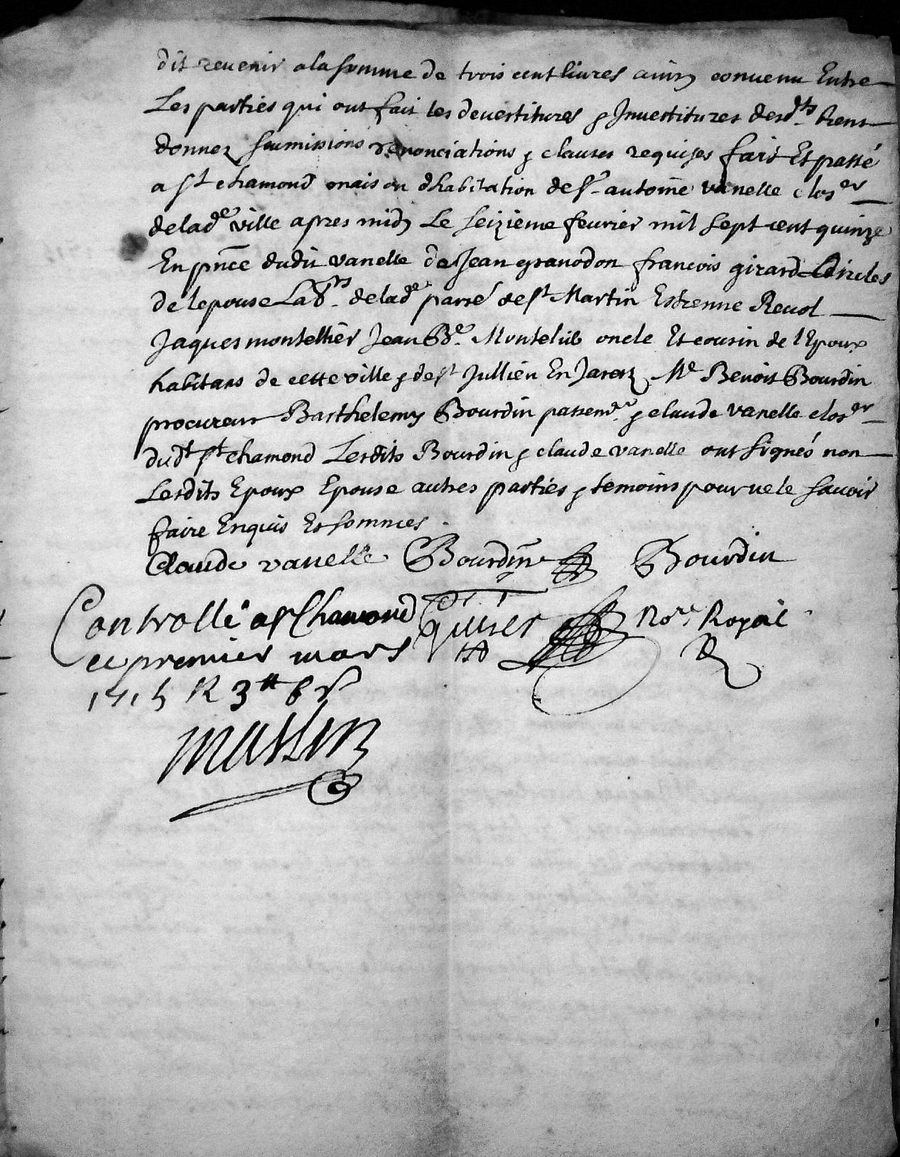 dit revenir a la somme de trois cent livres ainsy convenu Entre
Les parties qui ont fait les devestitures & Investitures desd.ts biens
donnez soumissions renonciations & clauses requises fait Et passé
a S.t chamond maison d'habitation de S.r antoine vanelle clos.er
de lad.e ville apres midy Le seizieme fevrier mil sept cent quinze
En pnce dudit vanelle de Jean granodon francois girard oncles
de lepouse La de lad.e parr.e de S.t Martin Estienne Revol
Jaques montellier Jean B.e Montelieb oncle Et cousin de l'Epoux
habitans de cette ville & de S.t Jullien En Jarest M.e Benoist Bourdin
procureur Barthelemy Bourdin passem.r & claude vanelle clos.er
dud.t S.t chamond Lesdits Bourdin & claude vanelle ont signés non
Lesdits Epoux Epouse autres parties & temoins pour ne le savoir
faire Enquis Et sommés.
Claude vanelle Bourdin Bourdin
Controllé a S.t Chamond No.re Royal
ce premier mars
1715 R 3# 6s